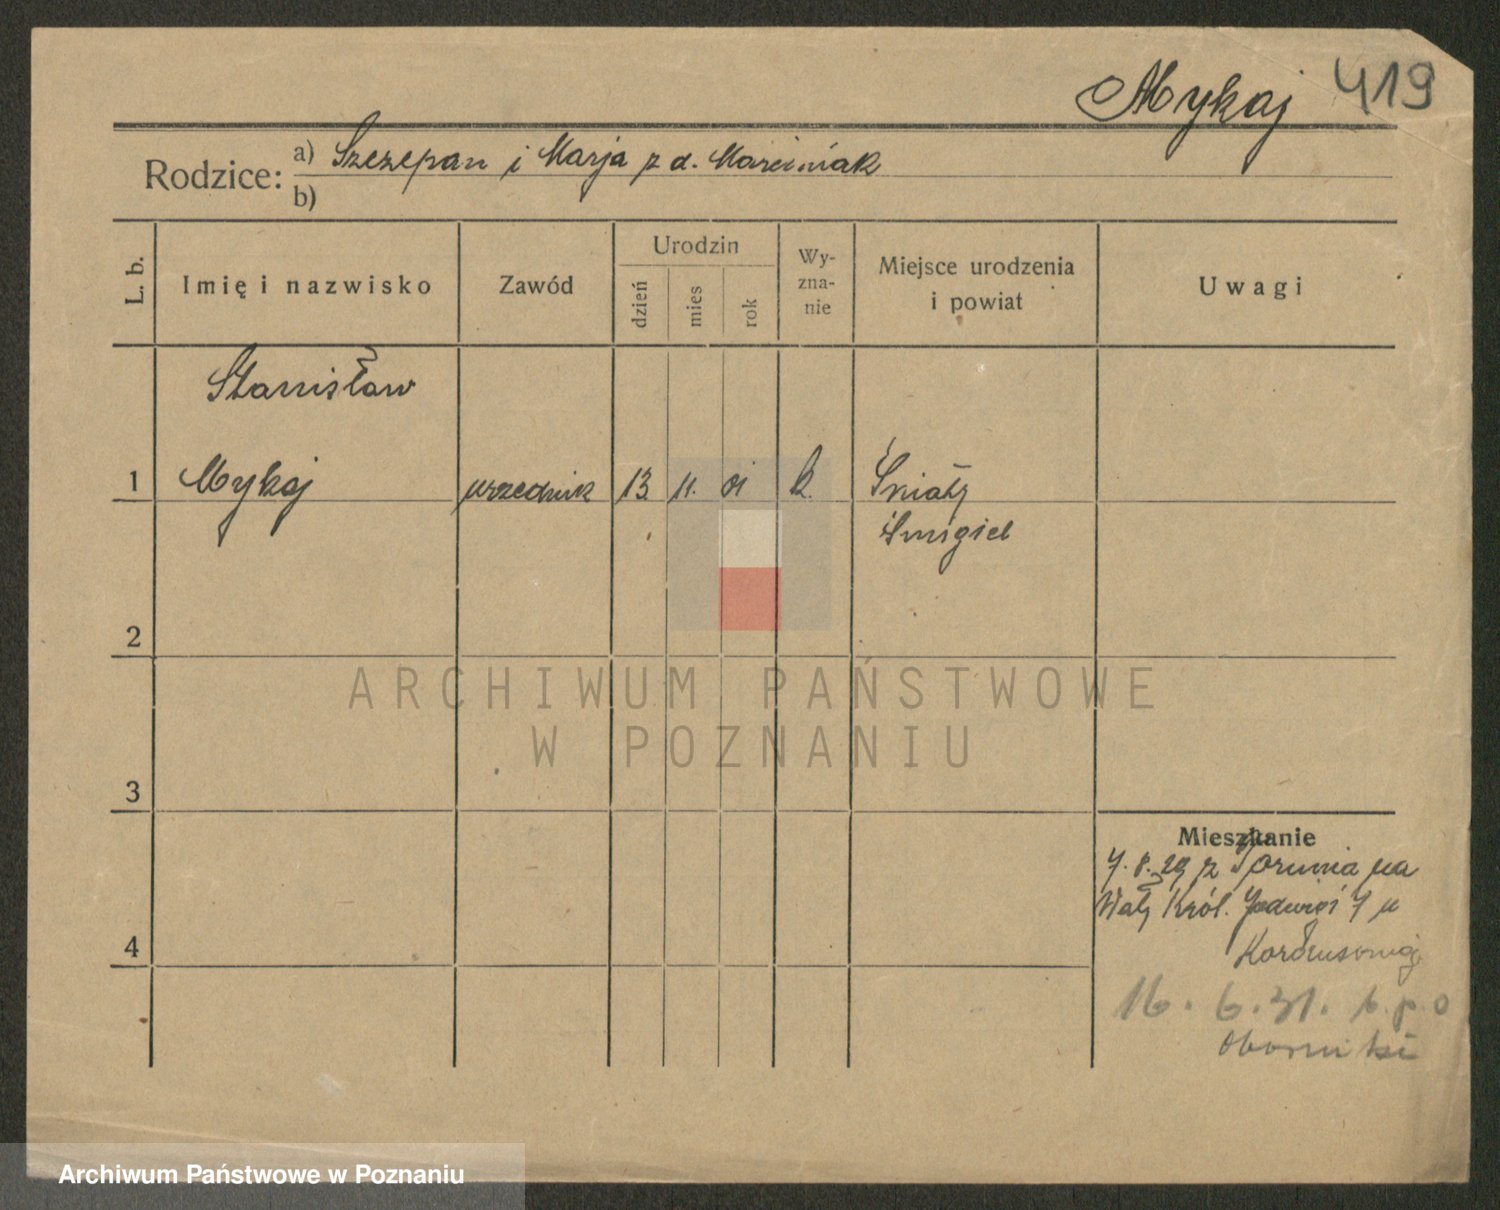 Mykaj 419
Rodzice: a) Szczepan i Marja z d. Marciniak
b)
L. b.
Imię i nazwisko
Zawód
Urodzin
dzień
mies
rok
Wy-
zna-
nie
Miejsce urodzenia
i powiat
Uwagi
Stanisław
1 Mykaj urzednik 13 11. 01 k. Śniaty
Śmigiel
2
ARCHIWUM PAŃSTWOWE
W POZNANIU
3
Mieszkanie
7.8.29 z Torunia na
Wały Król. Jadwigi 7 u
4
16.6.31. p.o
Oborniki
Archiwum Państwowe w Poznaniu